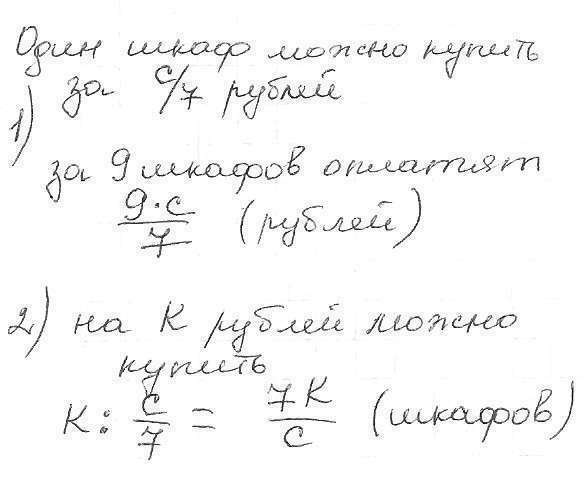 Один шкаф можно купить
за с/7 рублей
1)
за 9 шкафов оплатят
9·с/7 (рублей)
2) на К рублей можно
купить
К : с/7 = 7К/с (шкафов)